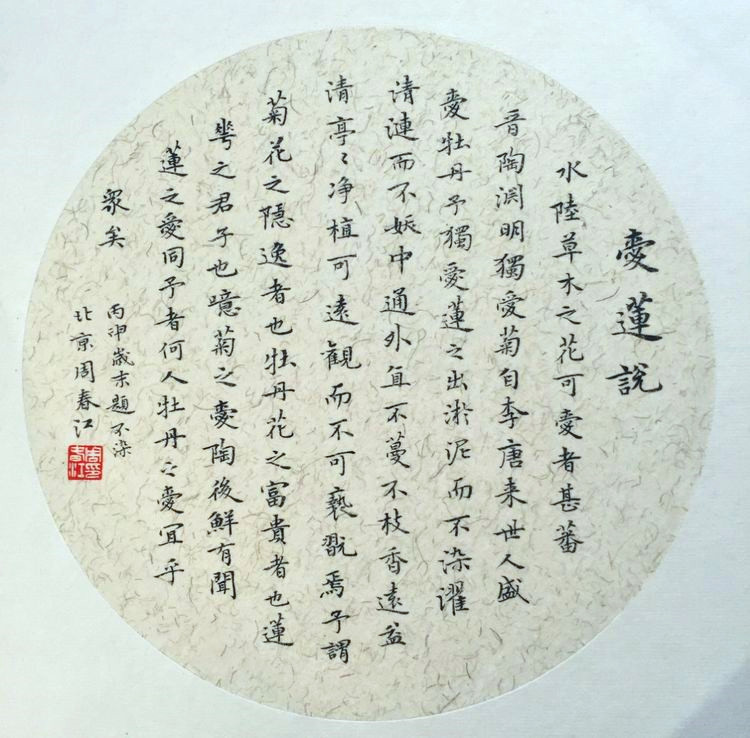 愛蓮說
水陸草木之花可愛者甚蕃
晉陶淵明獨愛菊自李唐来世人盛
愛牡丹予獨愛蓮之出淤泥而不染濯
清漣而不妖中通外直不蔓不枝香遠益
清亭〻净植可遠觀而不可褻翫焉予謂
菊花之隱逸者也牡丹花之富貴者也蓮
華之君子也噫菊之愛陶後鮮有聞
蓮之愛同予者何人牡丹之愛冝乎
眾矣
丙申歲末題不染
北京周春江
周印春江